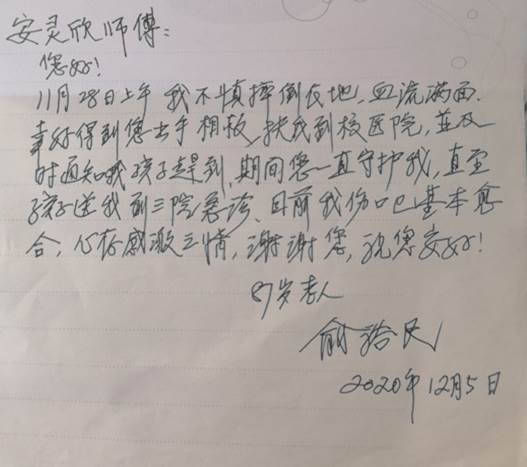 安灵欣师傅：
您好！
11月28日上午我不慎摔倒在地，血流满面．
幸好得到您出手相救，扶我到校医院，並及
时通知我孩子赶到，期间您一直守护我，直至
孩子送我到三院急诊．目前我伤口已基本愈
合，心存感激之情，谢谢您，祝您安好！
87岁老人
俞 民
2020年12月5日